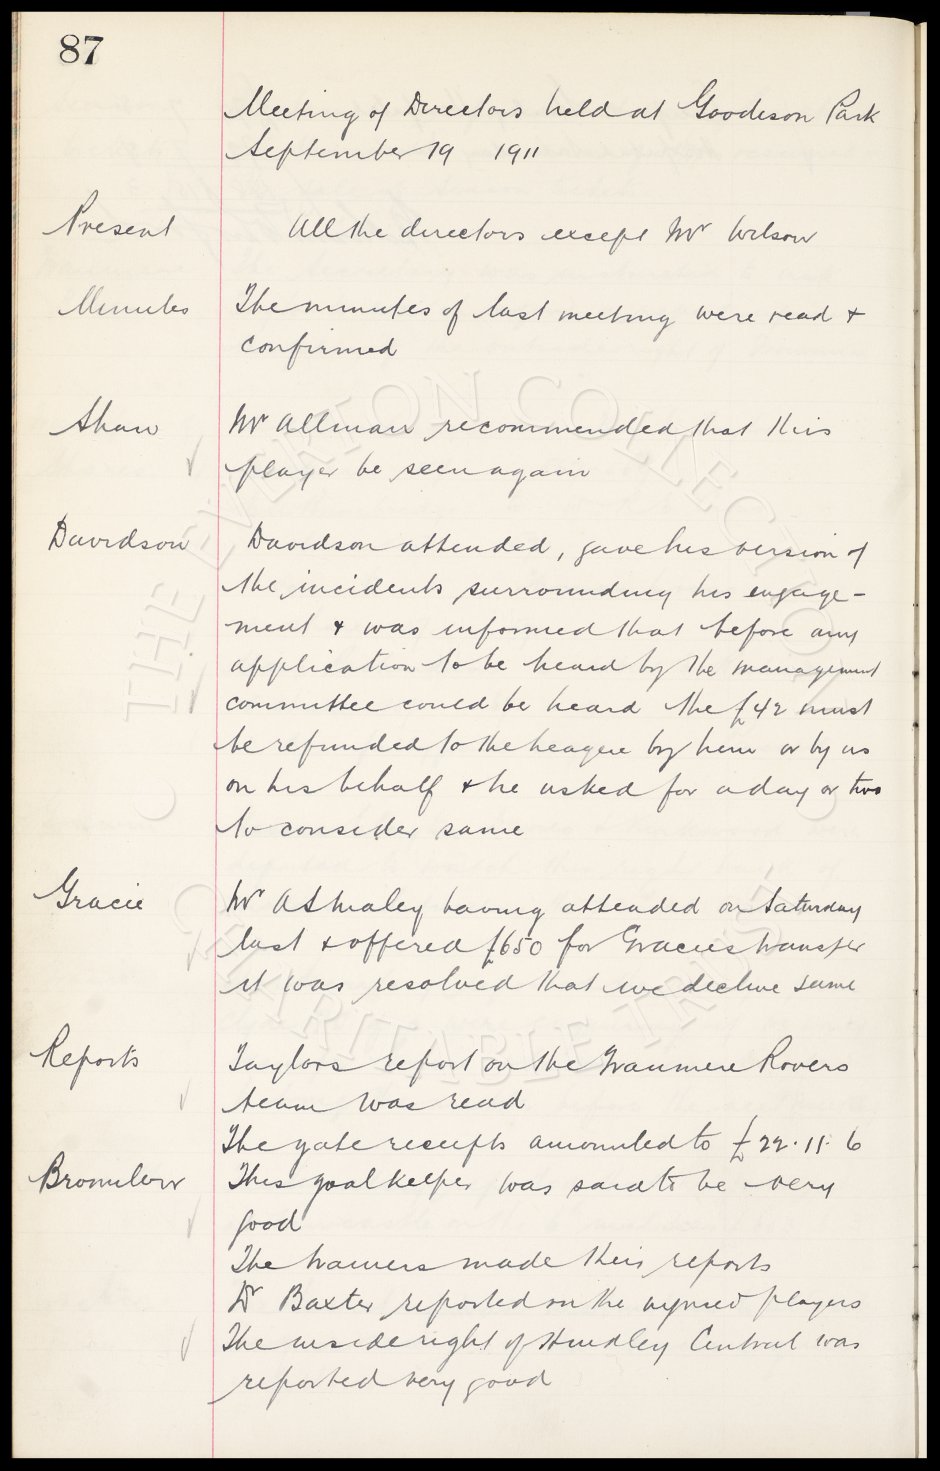 87
Meeting of Directors held at Goodison Park
September 19 1911
Present
All the directors except Mr Wilson
Minutes
The minutes of last meeting were read &
confirmed
Shaw
Mr Allman recommended that this
player be seen again
Davidson
Davidson attended, gave his version of
the incidents surrounding his engage-
ment & was informed that before any
application to be heard by the management
committee could be heard the £42 must
be refunded to the league by him or by us
on his behalf & he asked for a day or two
to consider same
Gracie
Mr Ashworth having attended on Saturday
last & offered £650 for Gracies transfer
it was resolved that we decline same
Reports
Taylors report on the Tranmere Rovers
team was read
The gate receipts amounted to £22.11.6
Bromilow
This goalkeeper was said to be very
good
The trainers made their reports
Dr Baxter reported on the injured players
The inside right of Hindley Central was
reported very good
© THE EVERTON COLLECTION
CHARITABLE TRUST